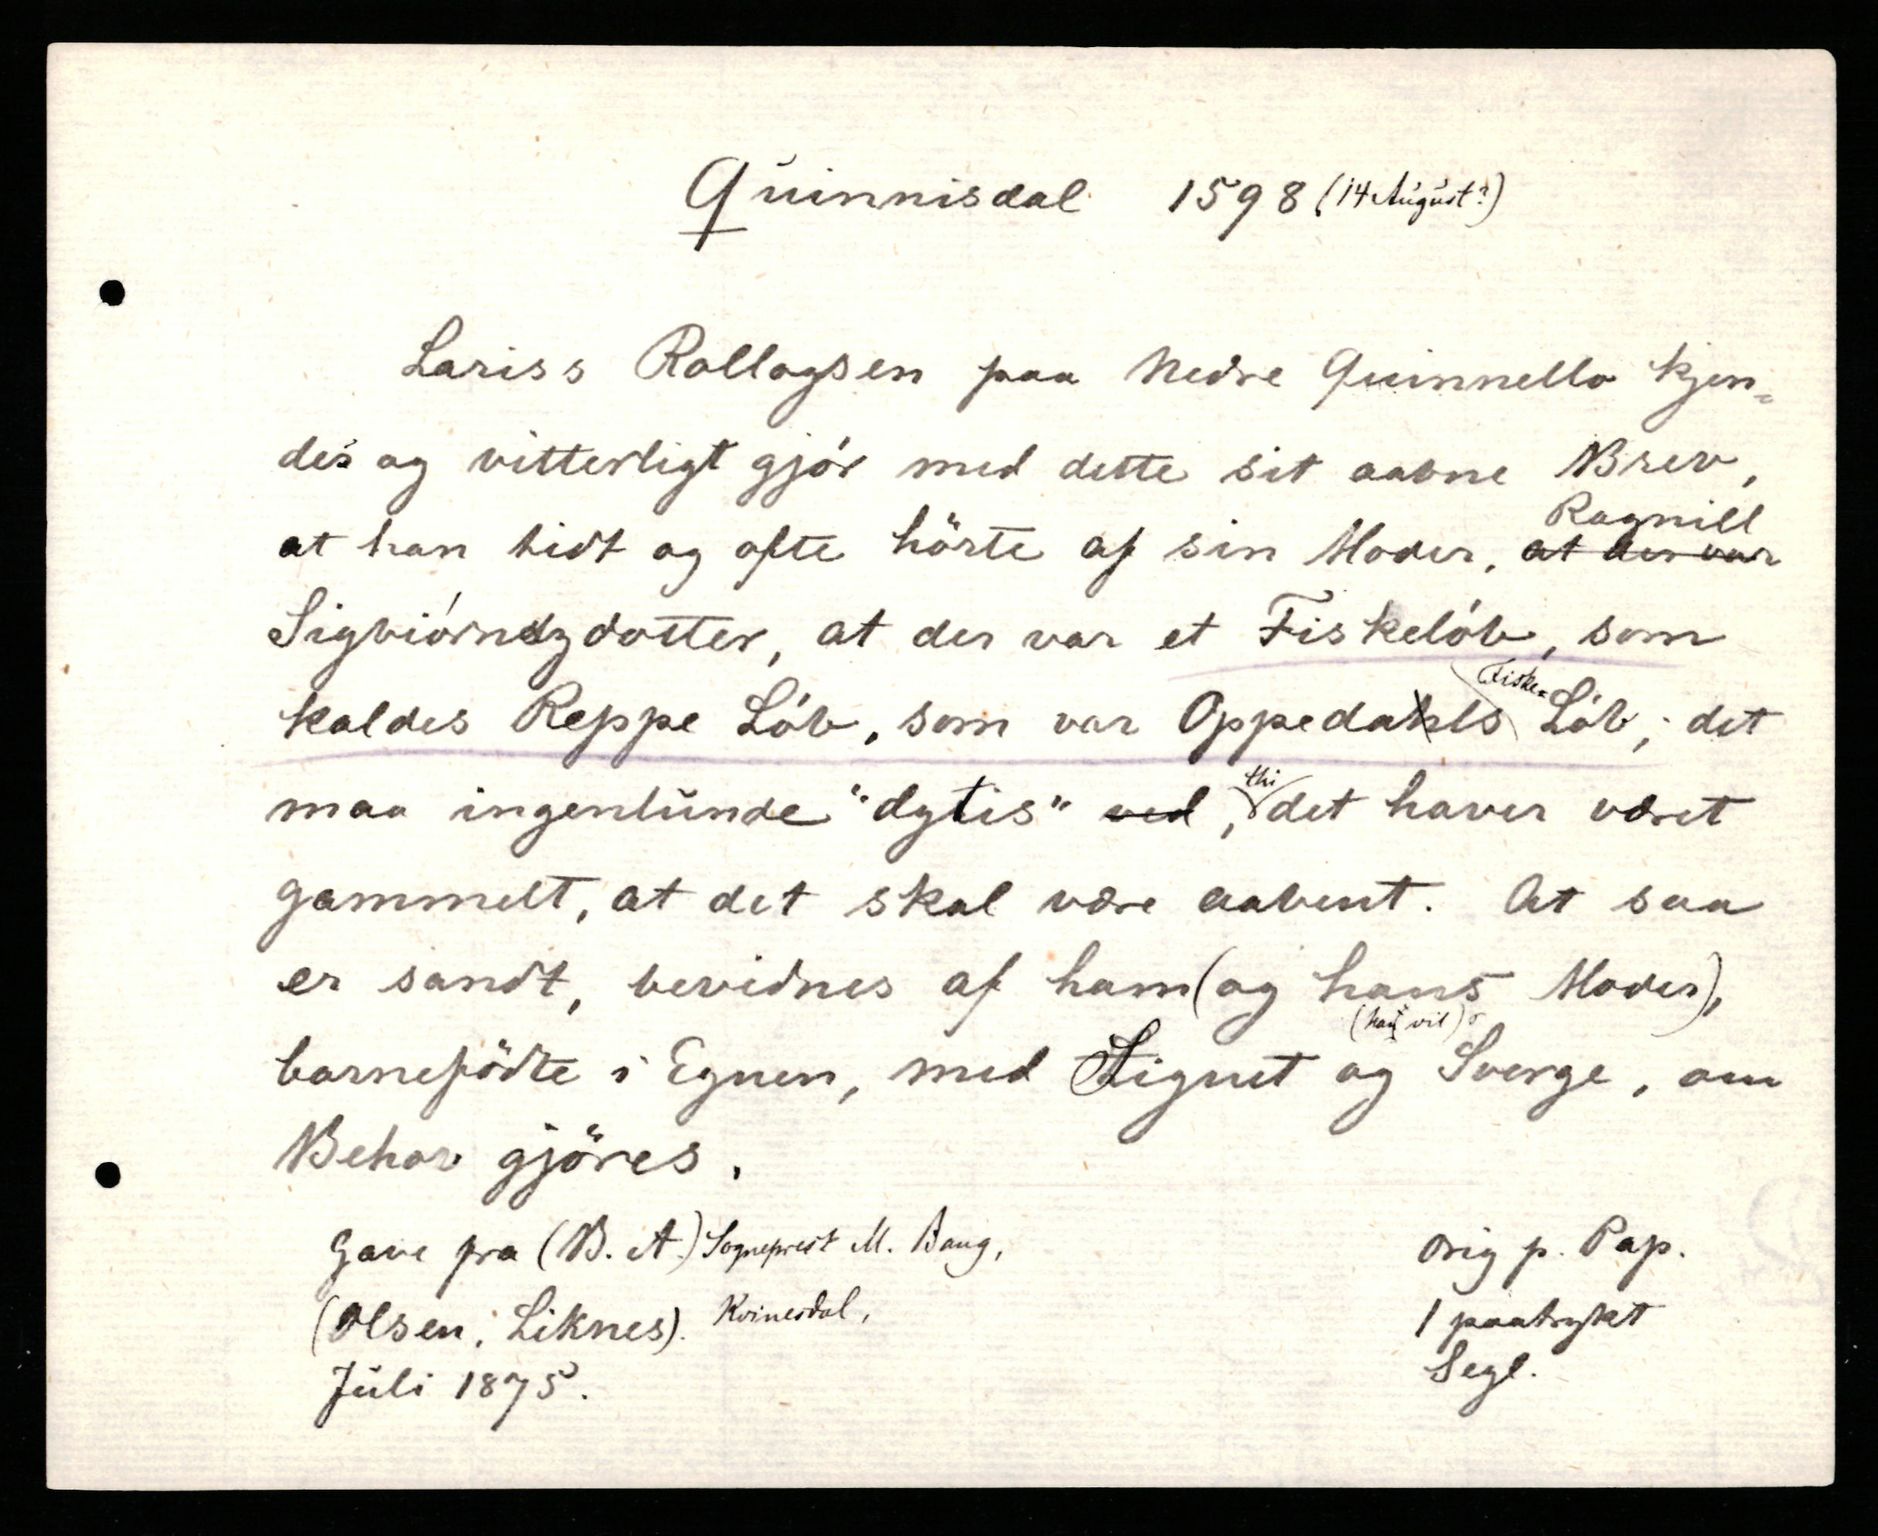 Quinnisdal 1598 (14 August?)
Lariss Rollogsen paa Nedre Quinnello kjen-
des og vitterligt gjör med dette sit aabne Brev,
at han tidt og ofte hörte af sin Moder, at der var Ragnill
Sigbiörndzdotter, at der var et Fiskelöb, som
kaldes Reppe Löb, som var Oppedahls Fiske- Löb; det
maa ingenlunde "dytis" ved, thi det haver været
gammelt, at det skal være aabent. At saa
er sandt, bevidnes af ham (og hans Moder),
barnefödte i Egnen, med Signet og (han vil) Sverge, om
Behov gjöres.
Gave fra (B. A.) Sogneprest M. Bang,
(Olsen, Liknes). Kvinesdal,
Juli 1875.
Orig p. Pap.
1 paatrykt
Segl.